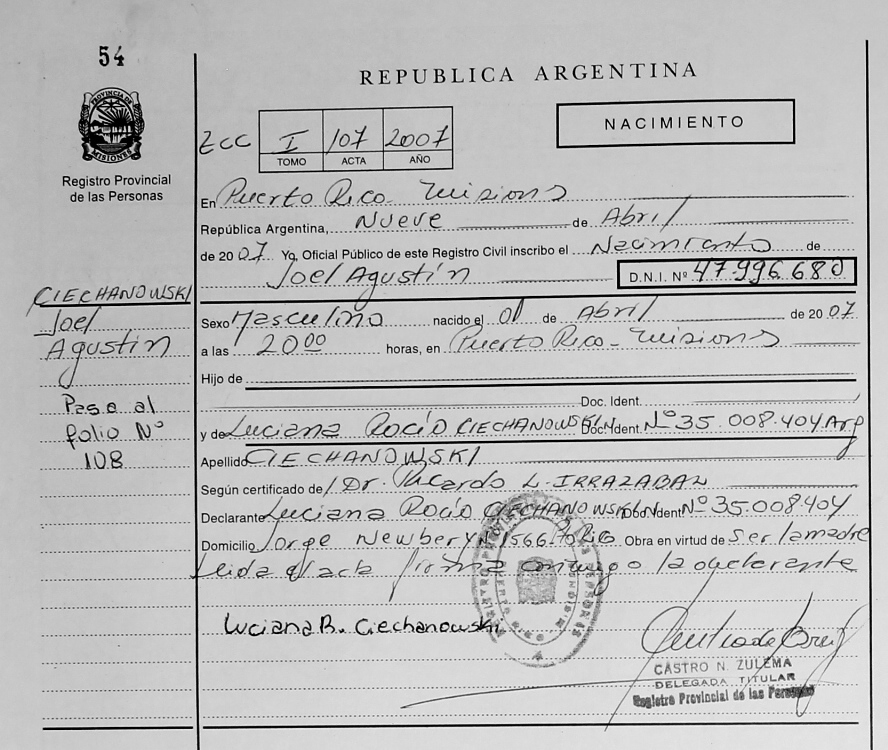 54
REPUBLICA ARGENTINA
PROVINCIA DE MISIONES
Registro Provincial
de las Personas
ZCC I 107 2007
TOMO ACTA AÑO
NACIMIENTO
En Puerto Rico - Misiones
República Argentina, Nueve de Abril
de 2007 Yo, Oficial Público de este Registro Civil inscribo el Nacimiento de
Joel Agustín D.N.I. Nº 47.996.680
CIECHANOWSKI
Joel
Agustín
Pasa al
folio Nº
108
Sexo Masculino nacido el 01 de Abril de 2007
a las 20 00 horas, en Puerto Rico - Misiones
Hijo de
Doc. Ident.
y de Luciana Rocío CIECHANOWSKI Doc. Ident. Nº 35.008.404 Arg
Apellido CIECHANOWSKI
Según certificado de Dr. Ricardo L. IRRAZABAL
Declarante Luciana Rocío CIECHANOWSKI Doc. Ident. Nº 35.008.404
Domicilio Jorge Newbery 1566 Pto Rico. Obra en virtud de Ser la madre
Leida el acta firma conmigo la declarante
Luciana R. Ciechanowski
CASTRO N. ZULEMA
DELEGADA TITULAR
Registro Provincial de las Personas